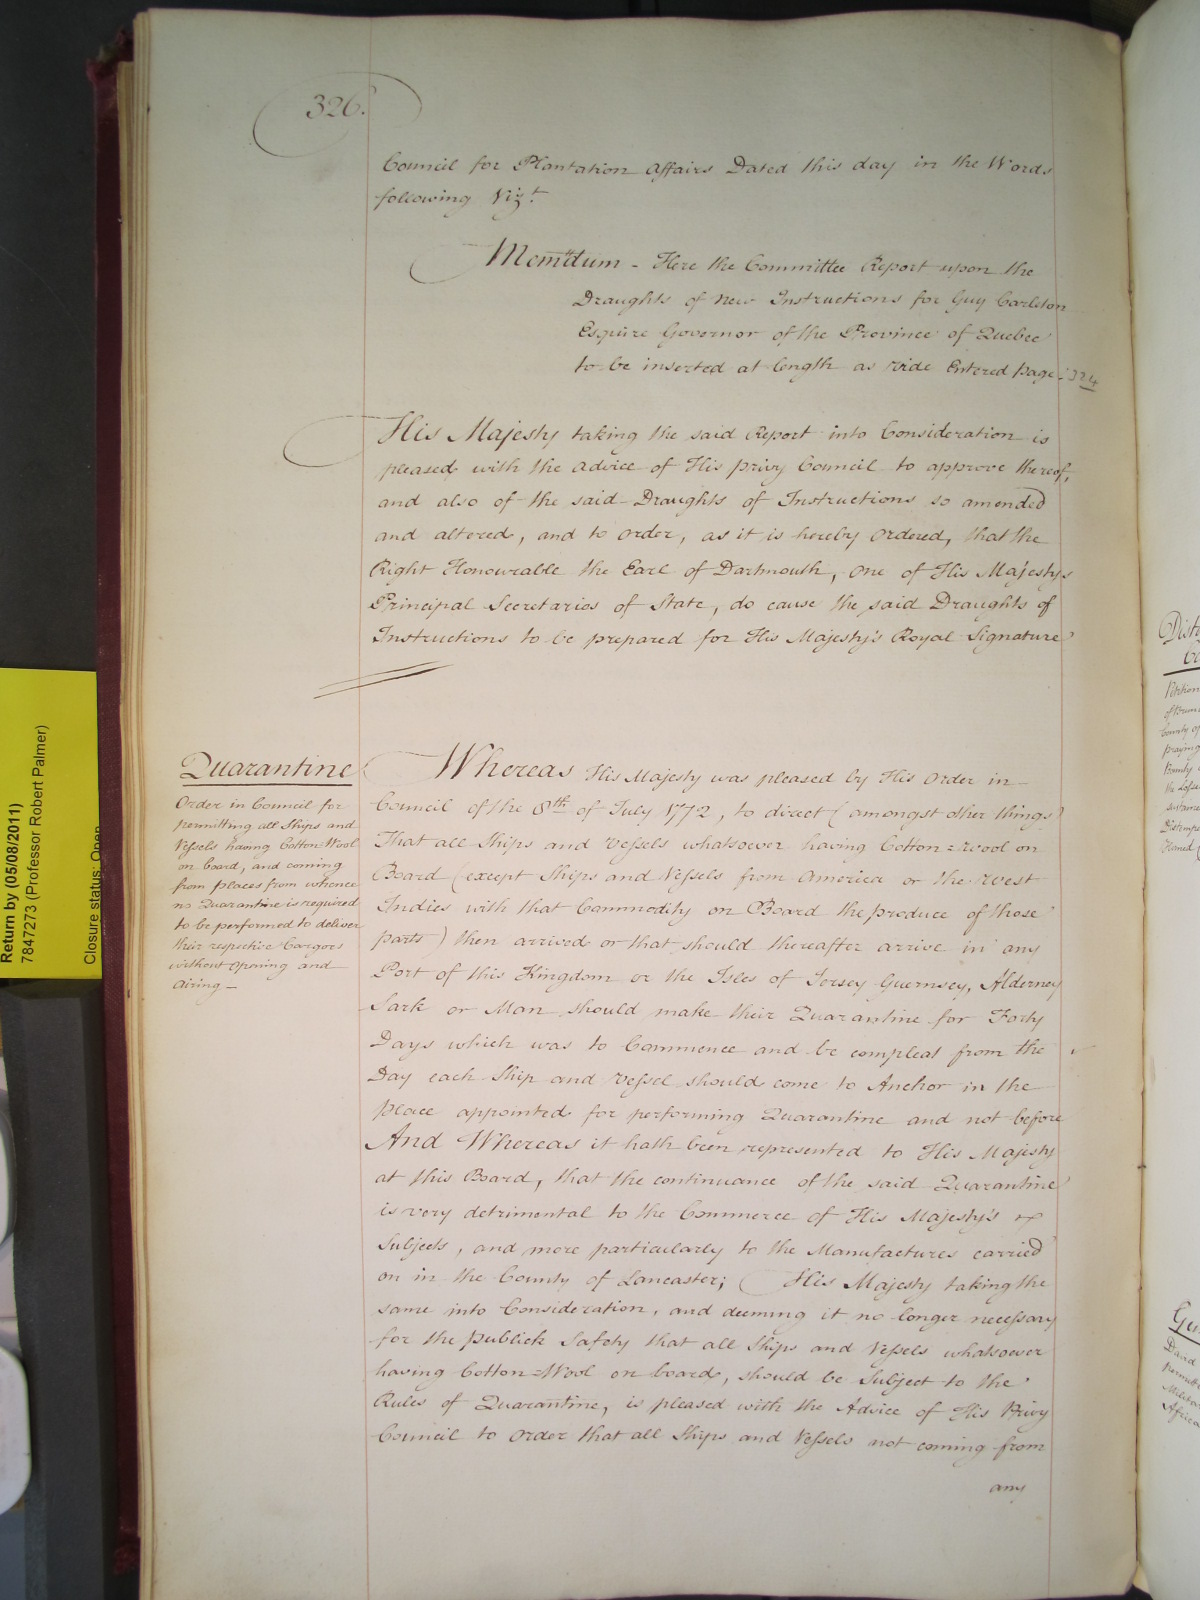 326.
Council for Plantation Affairs Dated this day in the Words
following Vizt.
Memdum - Here the Committee Report upon the
Draughts of New Instructions for Guy Carleton
Esquire Governor of the Province of Quebec
to be inserted at length as vide Entered page 324
His Majesty taking the said Report into Consideration is
pleased with the Advice of His privy Council to approve thereof,
and also of the said Draughts of Instructions so amended
and altered, and to order, as it is hereby Ordered, that the
Right Honourable the Earl of Dartmouth, one of His Majestys
Principal Secretaries of State, do cause the said Draughts of
Instructions to be prepared for His Majesty's Royal Signature
Quarantine
Order in Council for
permitting all Ships and
Vessels having Cotton Wool
on board, and coming
from places from whence
no Quarantine is required
to be performed to deliver
their respective Cargoes
without opening and
Airing -
Whereas His Majesty was pleased by His Order in
Council of the 8th of July 1772, to direct (amongst other things)
That all Ships and Vessels whatsoever having Cotton=wool on
Board (except Ships and Vessels from America or the West
Indies with that Commodity on Board the produce of those
parts) then arrived or that should thereafter arrive in any
Port of this Kingdom or the Isles of Jersey Guernsey, Alderney
Sark or Man should make their Quarantine for Forty
Days which was to Commence and be compleat from the
Day each Ship and Vessel should come to Anchor in the
place appointed for performing Quarantine and not before
And Whereas it hath been represented to His Majesty
at this Board, that the continuance of the said Quarantine
is very detrimental to the Commerce of His Majesty's
Subjects, and more particularly to the Manufactures carried
on in the County of Lancaster; His Majesty taking the
same into Consideration, and deeming it no longer necessary
for the publick Safety that all Ships and Vessels whatsoever
having Cotton=Wool on board, should be Subject to the
Rules of Quarantine, is pleased with the Advice of His Privy
Council to Order that all Ships and Vessels not coming from
any
Return by (05/08/2011)
7847273 (Professor Robert Palmer)
Closure status: Open